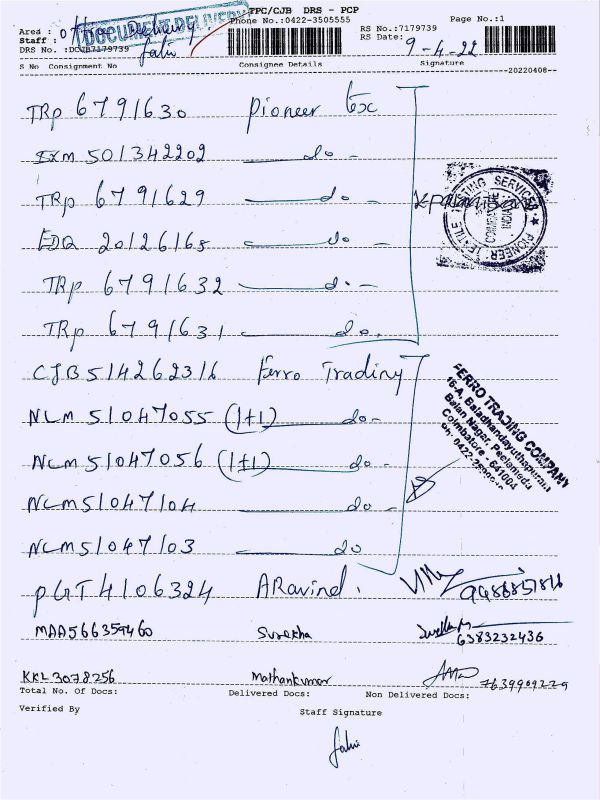 TPC/CJB DRS - PCP
Page No.:1
DOCUMENT DELIVERY
Phone No.:0422-3505555
Area : office Delivery
RS No.:7179739
Staff :
RS Date:
9-4-22
DRS No. :DCJB7179739
S No Consignment No Consignee Details Signature
--20220408--
TRP 6791630 Pioneer tex
EXM 501342202 do -
TRP 6791629 do -
EDQ 20126165 do -
TRP 6791632 do -
TRP 6791631 do.
PIONEER TEXTILE TESTING SERVICES
COIMBATORE
INDIA
CJB 514262316 Ferro Trading
NLM 51047055 (1+1) do -
NLM 51047056 (1+1) do -
NLM 51047104 do -
NLM 51047103 do
FERRO TRADING COMPANY
16-A, Baladhandayuthapuram
Balan Nagar, Peelamedu
Coimbatore - 641004
Ph: 0422-
PGT 4106324 ARavind.
MAA566359460 Surekha 6383232436
KKL3078256 Mathankumar 7639909229
Total No. Of Docs: Delivered Docs: Non Delivered Docs:
Verified By Staff Signature